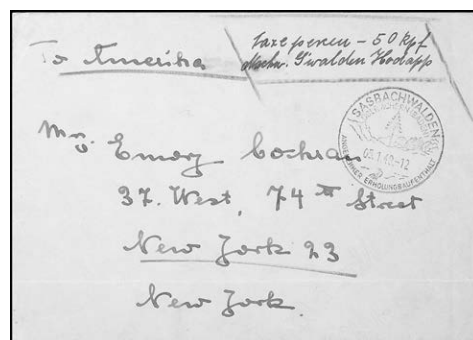 To Amerika
taxe percue - 50 Rpf
Sasbachwalden Hodapp
SASBACHWALDEN
ANGENEHMER ERHOLUNGSAUFENTHALT
Mr. Emory Cochran
37. West, 74th Street
New York 23
New York.